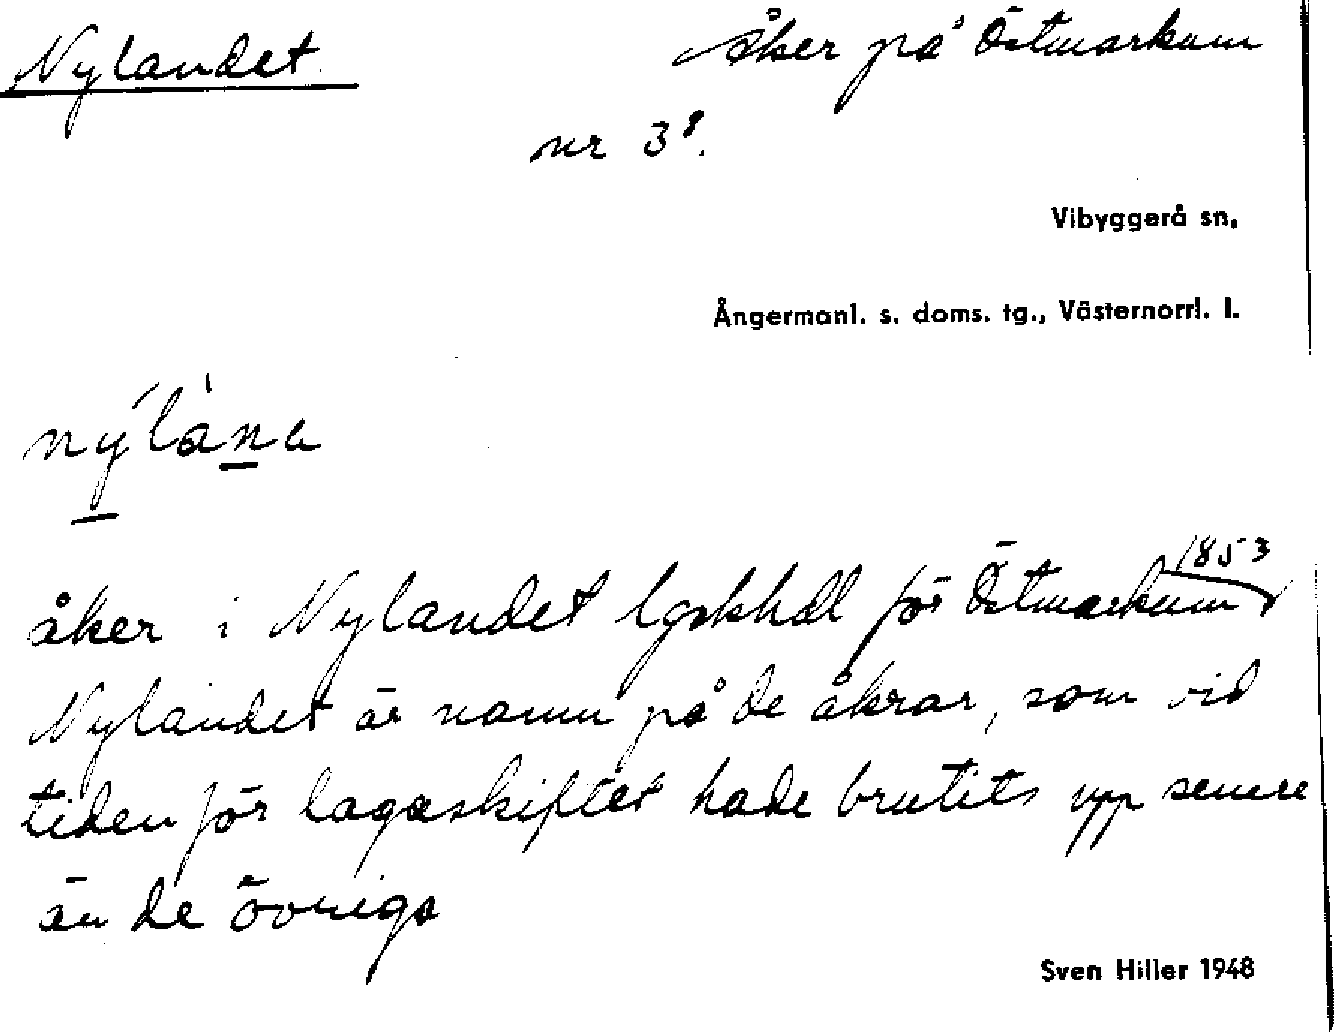 Nylandet. åker på Östmarkum
nr 3⁸.
Vibyggerå sn.
Ångermanl. s. doms. tg., Västernorrl. l.
nýlàna
åker i Nylandet lgskhdl för Östmarkum 1853
Nylandet är namn på de åkrar, som vid
tiden för lagaskiftet hade brutits upp senere
än de övriga
Sven Hiller 1948